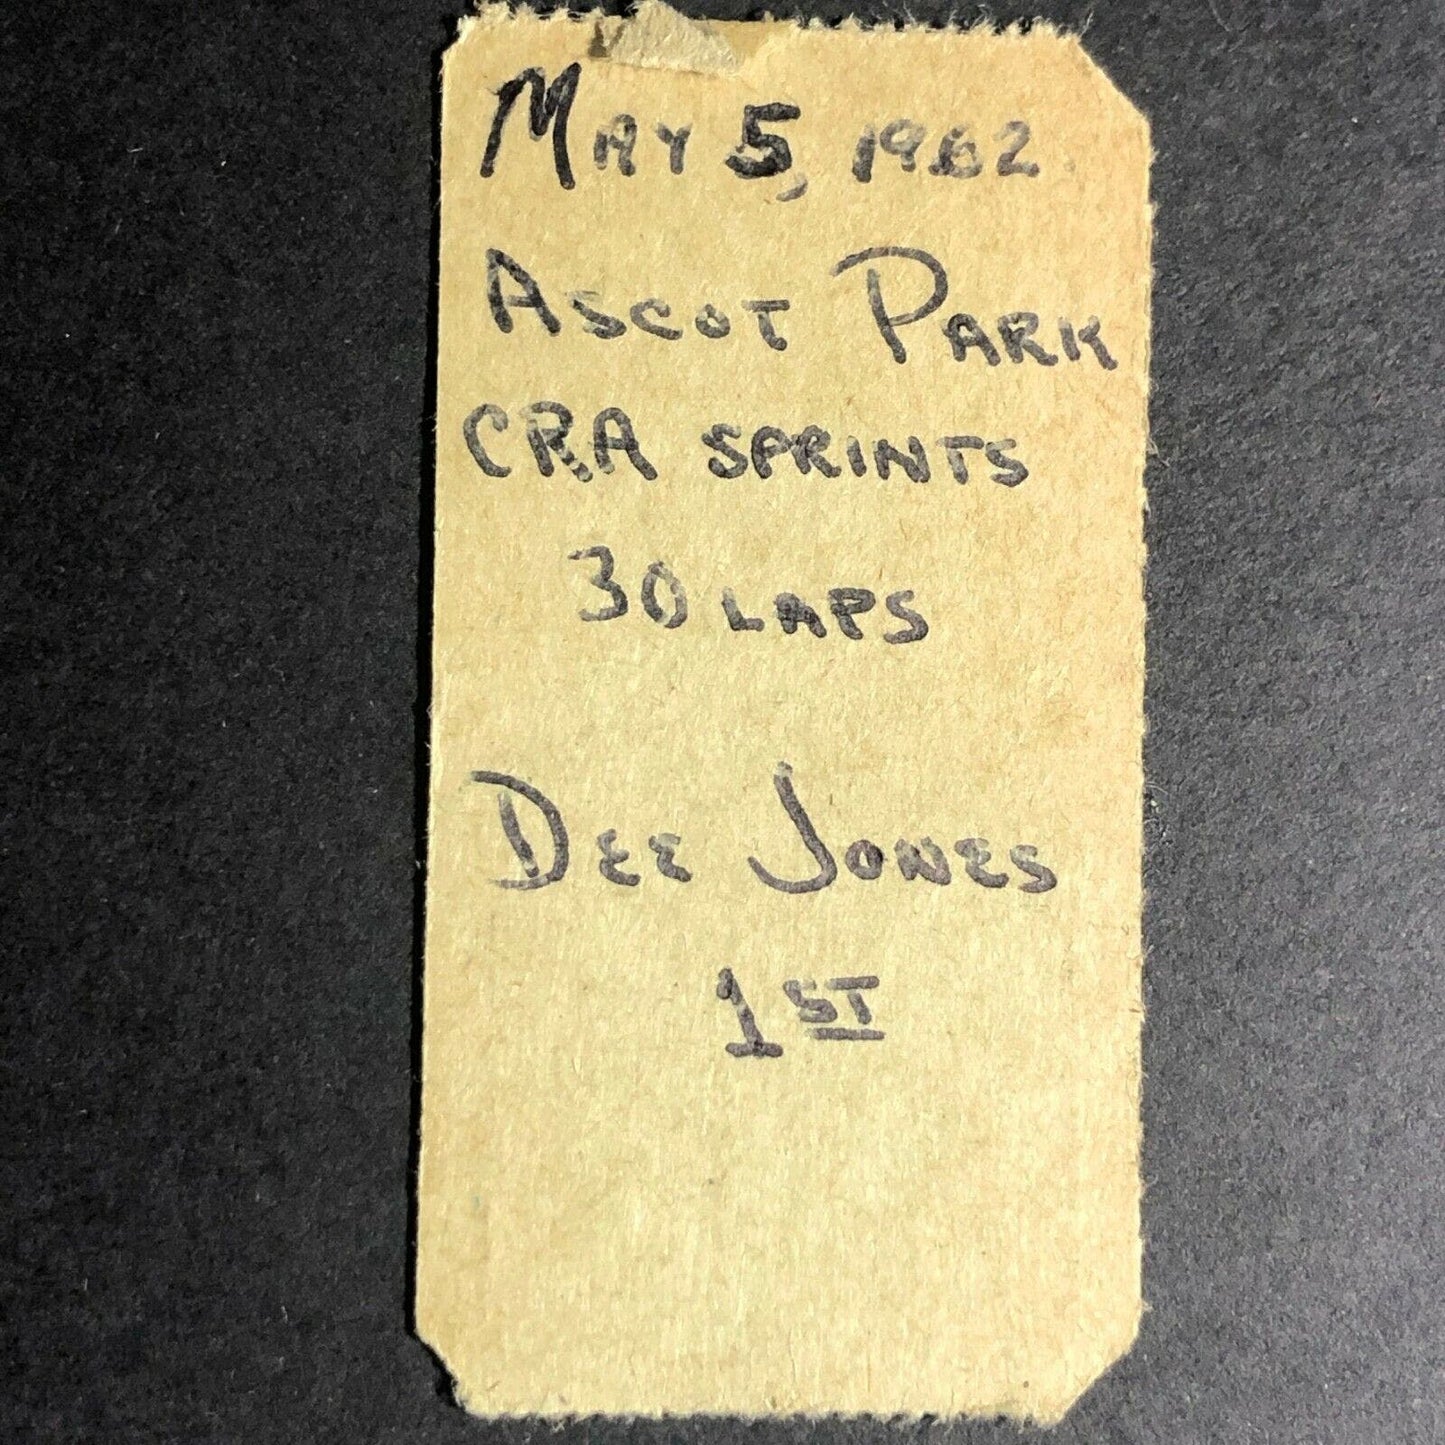 MAY 5, 1962
ASCOT PARK
CRA SPRINTS
30 LAPS
DEE JONES
1ST